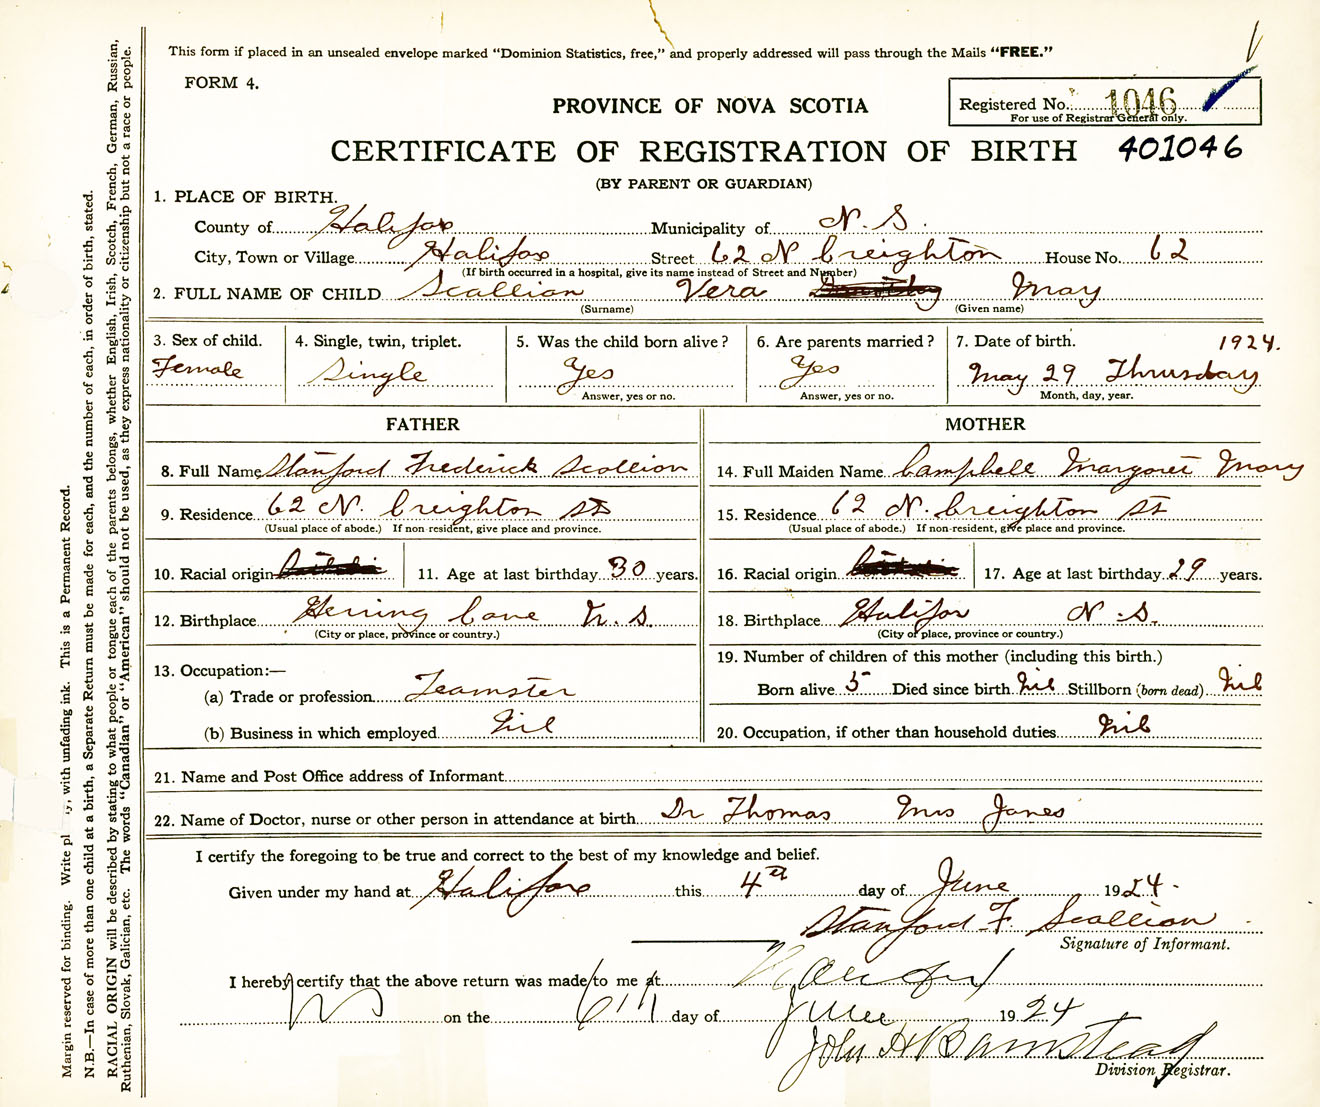 This form if placed in an unsealed envelope marked "Dominion Statistics, free," and properly addressed will pass through the Mails "FREE."
FORM 4.
Registered No. 1046
For use of Registrar General only.
PROVINCE OF NOVA SCOTIA
CERTIFICATE OF REGISTRATION OF BIRTH 401046
(BY PARENT OR GUARDIAN)
1. PLACE OF BIRTH.
County of Halifax Municipality of N. S.
City, Town or Village Halifax Street 62 N Creighton House No. 62
(If birth occurred in a hospital, give its name instead of Street and Number)
2. FULL NAME OF CHILD Scallion Vera May
(Surname) (Given name)
3. Sex of child. 4. Single, twin, triplet. 5. Was the child born alive? 6. Are parents married? 7. Date of birth. 1924.
Female Single Yes Yes May 29 Thrusday
Answer, yes or no. Answer, yes or no. Month, day, year.
FATHER MOTHER
8. Full Name Stanford Frederick Scallion 14. Full Maiden Name Campbell Margaret Mary
9. Residence 62 N. Creighton St 15. Residence 62 N. Creighton St
(Usual place of abode.) If non-resident, give place and province. (Usual place of abode.) If non-resident, give place and province.
10. Racial origin 11. Age at last birthday 30 years. 16. Racial origin 17. Age at last birthday 29 years.
12. Birthplace Herring Cove N. S. 18. Birthplace Halifax N. S.
(City or place, province or country.) (City or place, province or country.)
13. Occupation:— 19. Number of children of this mother (including this birth.)
(a) Trade or profession Teamster Born alive 5 Died since birth Nil Stillborn (born dead) Nil
(b) Business in which employed Nil 20. Occupation, if other than household duties Nil
21. Name and Post Office address of Informant
22. Name of Doctor, nurse or other person in attendance at birth Dr Thomas Mrs Janes
I certify the foregoing to be true and correct to the best of my knowledge and belief.
Given under my hand at Halifax this 4th day of June 1924.
Stanford F. Scallion
Signature of Informant.
I hereby certify that the above return was made to me at Halifax
N S on the 6th day of June 1924
John H Barnstead
Division Registrar.
Margin reserved for binding. Write pl y, with unfading ink. This is a Permanent Record.
N.B.—In case of more than one child at a birth, a Separate Return must be made for each, and the number of each, in order of birth, stated.
RACIAL ORIGIN will be described by stating to what people or tongue each of the parents belongs, whether English, Irish, Scotch, French, German, Russian,
Ruthenian, Slovak, Galician, etc. The words "Canadian" or "American" should not be used, as they express nationality or citizenship but not a race or people.